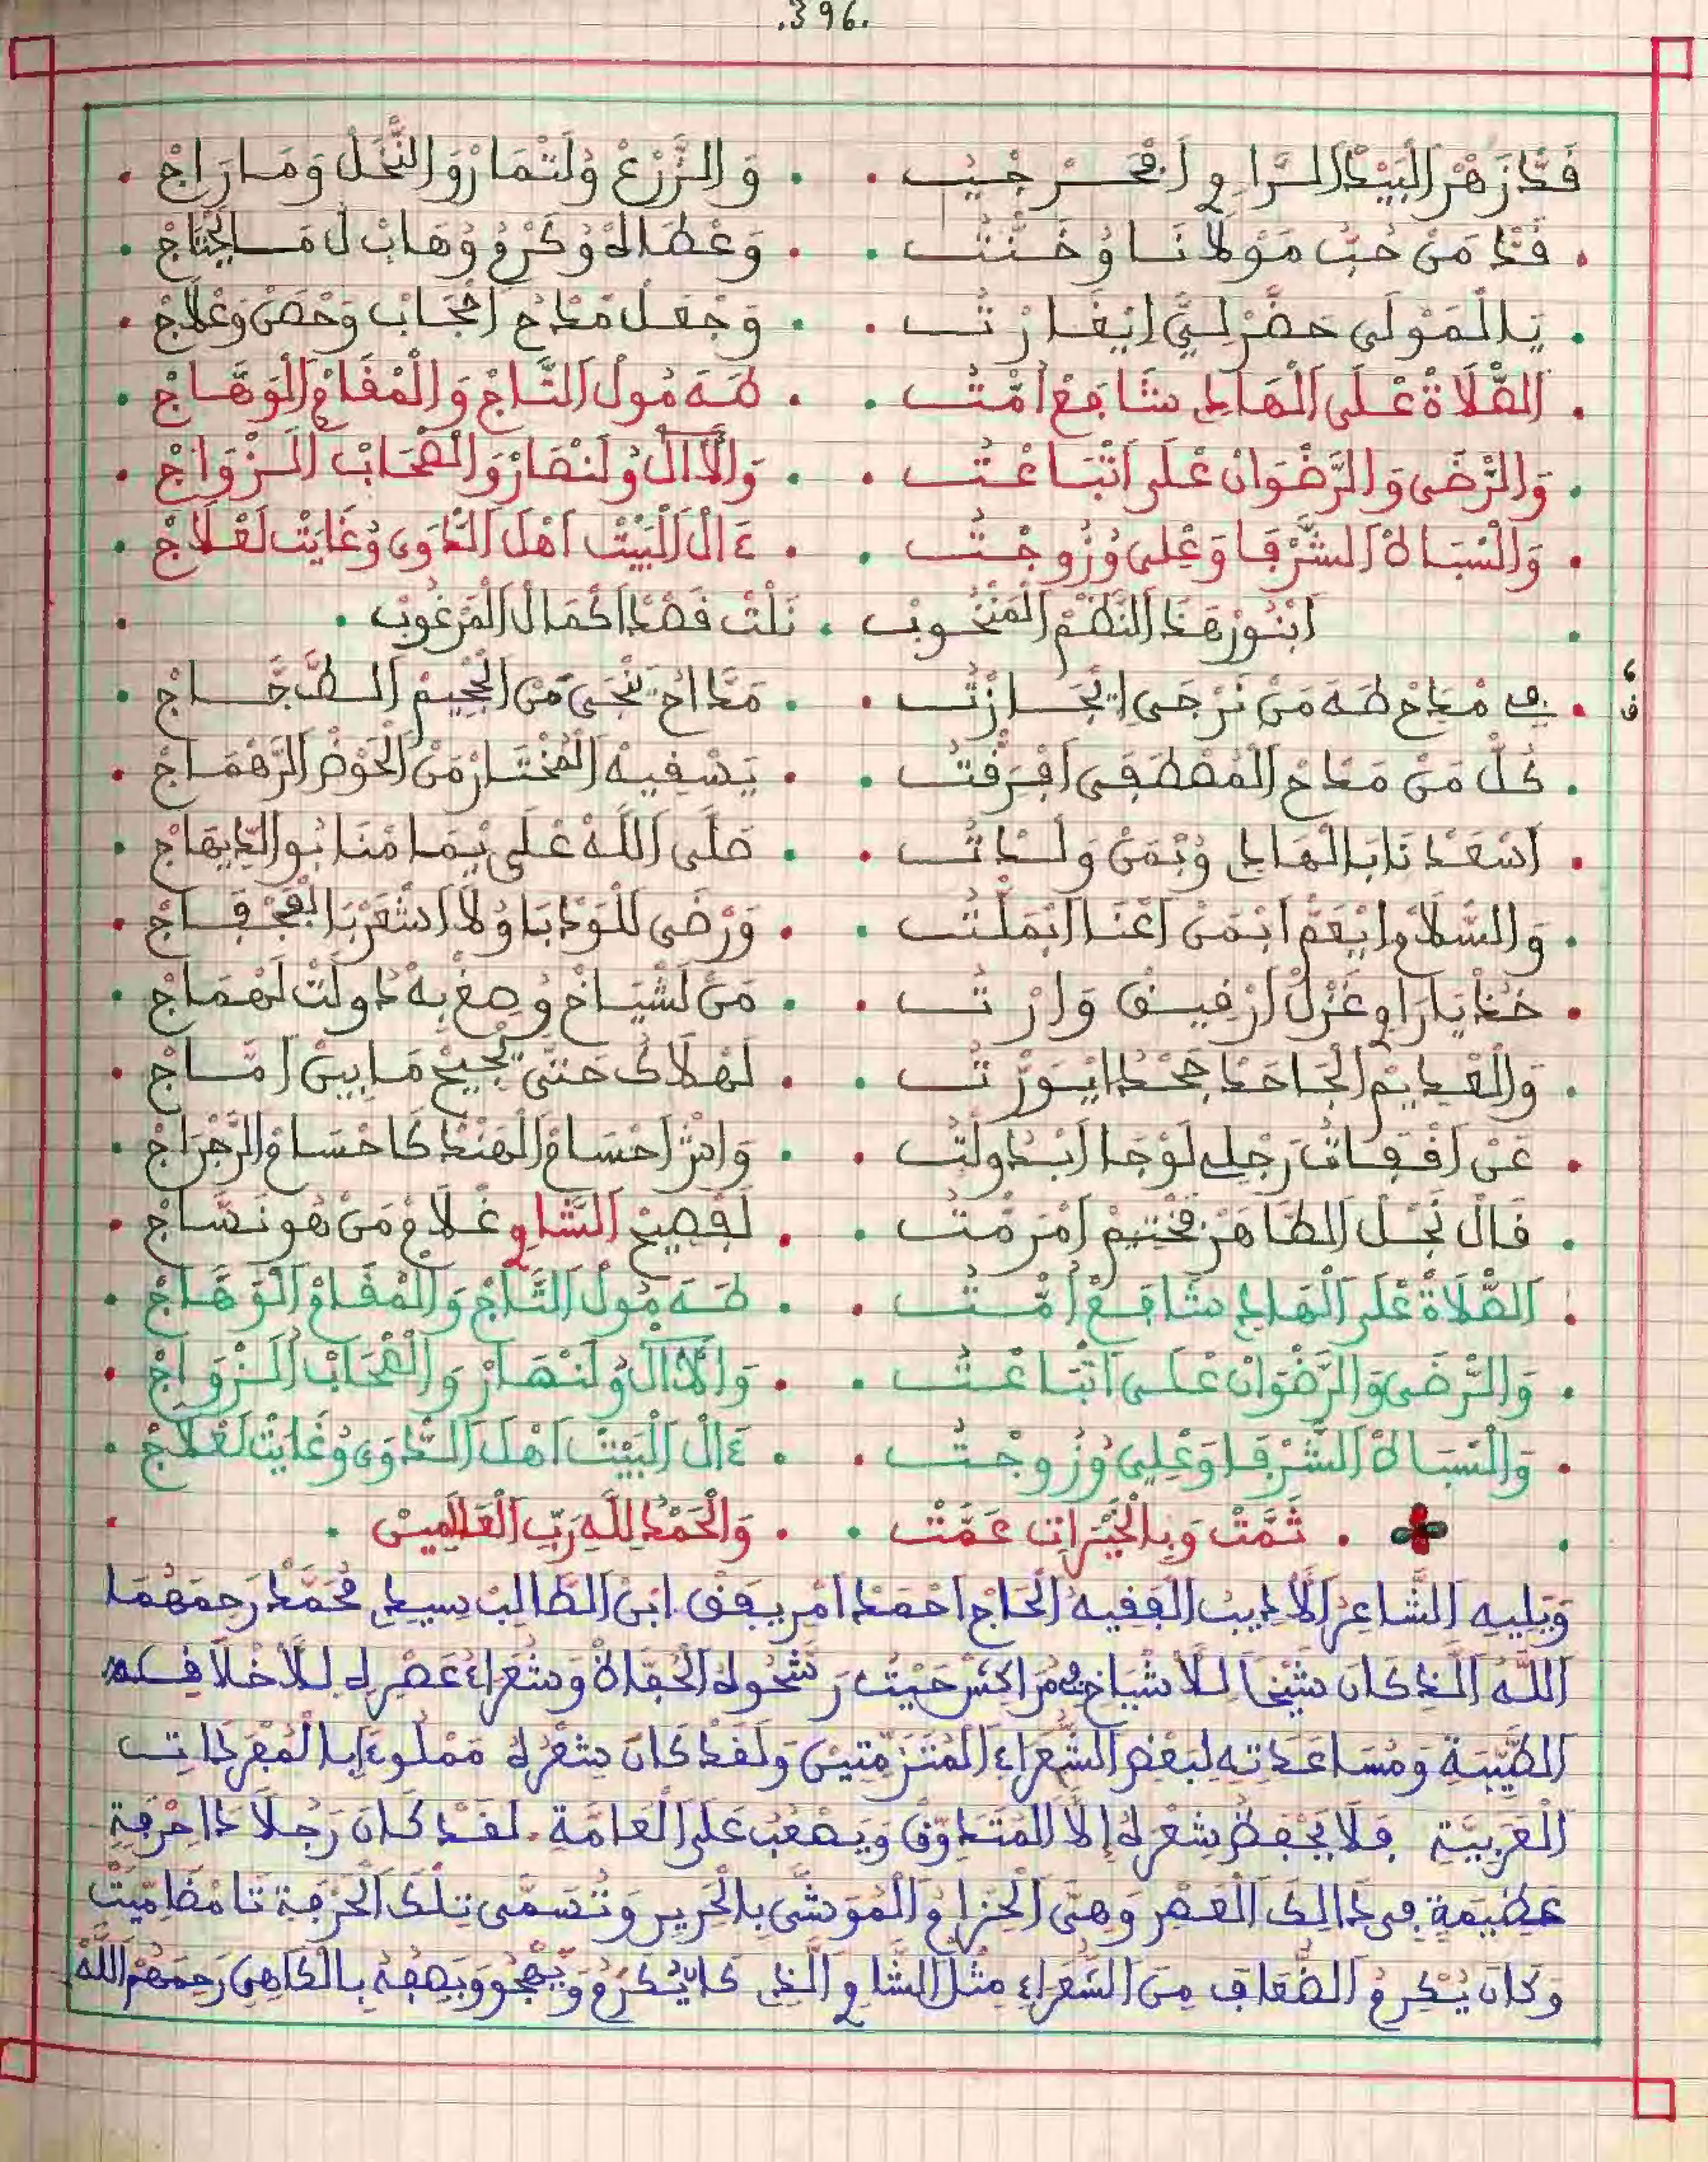 .396.
قَدّ زَهْرْ الْبَيْدْ الرَّاوِي افْجَرْ جْيُبْ . وَالزَّرْعْ وُلَثْمَارْ وَالنَّخْلْ وَمَا رَاجْ
قَدّ مَنْ حَبّ مَوْلَانَا وُخَنْتُ . وَعْطَاهْ وُكَرْمُ وُهَابْ لُ مَا يَحْتَاجْ
يَالْمَوْلَى حَضَّرْ لِيَّ ايْغَارْتُ . وَجْعَلْ مَدَاحُ احْجَابْ وَحْصَنْ وَعْلَاجْ
الصّْلَاةْ عْلَى الْهَادِي شَافَعْ أُمّْتُ . طَهَ مُولْ التَّاجْ وَالْمْقَامْ الْوَهَّاجْ
وَالرّْضَى وَالرَّضْوَانْ عْلَى اتْبَاعْتُ . وَالْأَالْ وُلَنْصَارْ وَالصْحَابْ الزْوَاجْ
وَالْسْبَاهْ الشُّرْفَا وَعْلِي وُزُوجْتُ . ءَالْ الْبَيْتْ اهْلْ الدَّاوِي وُغَايْتْ لَعْلَاجْ
ابْنُورْ هَذَا النَّظْمْ الْمَنْخُوبْ . نَلْتْ قَصْدْ اكْمَالْ الْمَرْغُوبْ
ق
فِي مْدَاحْ طَهَ مَنْ نَرْجَى اتْجَارْتُ . مَدَّاحُ تَنْجَى مَنْ الْجْحِيمْ الطَّجَّاجْ
كُلّ مَنْ مْدَاحْ الْمُصْطَفَى افْرَقْتُ . يَسْقِيهْ الْمُخْتَارْ مَنْ الْحَوْضْ الزَّهْمَاجْ
اسْعَدْنَا بَالْهَادِي وُبْمَنْ وَلْدَاتُ . صَلَّى اللَّهْ عْلَى يْمَامْنَا بُو الدِّيهَاجْ
وَالسّْلَامْ ايْعَمّ ابْمَنْ اعْنَا ابْمَلْتُ . وَرْضَى لَلْوَدْبَا وُلَا اشْعَرْ بَالْفَجْفَاجْ
خُذْ يَا رَاوِي غَزْلْ ارْفِيقْ وَارْتُ . مَنْ لَشْيَاخْ وُصِغْ بِهْ دَاولْتْ لَهْمَاجْ
وَالْقْدِيمْ الْجَاحَدْ جَحْدْ ايْوَرْتُ . لَهْلَاكْ حَتَّى يْجِيحْ مَا بِينْ امْسَاجْ
عَنْ اقْفَاهْ رَجْلِي لَوْجَا ابْدَولْتُ . وَاشْ احْسَامْ الْهَنْدْ كَاحْسَامْ الرَّجْرَاجْ
قَالْ نَجْلْ الطَّاهَرْ فَخْتِيمْ امْرَمْتُ . لَفْصِيحْ الشَّاوِي غْلَامْ مَنْ هُو نَسَّاجْ
الصّْلَاةْ عْلَى الْهَادِي شَافَعْ أُمّْتُ . طَهَ مُولْ التَّاجْ وَالْمْقَامْ الْوَهَّاجْ
وَالرّْضَى وَالرَّضْوَانْ عْلَى اتْبَاعْتُ . وَالْأَالْ وُلَنْصَارْ وَالصْحَابْ الزْوَاجْ
وَالْسْبَاهْ الشُّرْفَا وَعْلِي وُزُوجْتُ . ءَالْ الْبَيْتْ اهْلْ الدَّاوِي وُغَايْتْ لَعْلَاجْ
. ثَمَّتْ وَبِالْخَيْرَاتِ عَمَّتْ . وَالْحَمْدُ لِلَّهِ رَبِّ الْعَالَمِينْ .
وَيَلِيهِ الشَّاعِرُ الْأَدِيبُ الْفَقِيهُ الْحَاج احْمَدْ امْرِيفَقْ ابْنُ الطَّالِبْ سِيدِي مُحَمَّدْ رَحِمَهُمَا
اللَّهُ الَّذِي كَانَ شَيْخًا لِلْأَشْيَاخِ فِي مُرَّاكُشْ حَيْثُ رَشَّحُوهُ الْحُفَّاظْ وَشُعَرَاءُ عَصْرِهِ لِلْأَخْلَاقِهِ
الطَّيِّبَةِ وَمُسَاعَدَتِهِ لِبَعْضِ الشُّعَرَاءِ الْمُتَزَمِّتِينَ وَلَقَدْ كَانَ شِعْرُهُ مَمْلُوءًا بِالْمُفْرَدَاتِ
الْعَرَبِيَّةِ فَلَا يَحْفَظُ شِعْرَهُ إِلَّا الْمُتَذَوِّقْ وَيَصْعُبُ عَلَى الْعَامَّةِ. لَقَدْ كَانَ رَجُلًا ذَا حِرْفَةٍ
عَظِيمَةٍ فِي ذَالِكَ الْعَصْرِ وَهِيَ الْحِزَامُ الْمُوَشَّى بِالْحَرِيرِ وَتُسَمَّى تِلْكَ الْحِرْفَةُ تَامْضَامِّيتْ
وَكَانَ يُكْرِمُ الضُّعَافَ مِنَ الشُّعَرَاءِ مِثْلَ الشَّاوِي الَّذِي كَانَ يُكْرِمُ وَيَهْجُو وَيَصِفُهُ بِالدَّاهِي رَحِمَهُمْ اللَّهُ